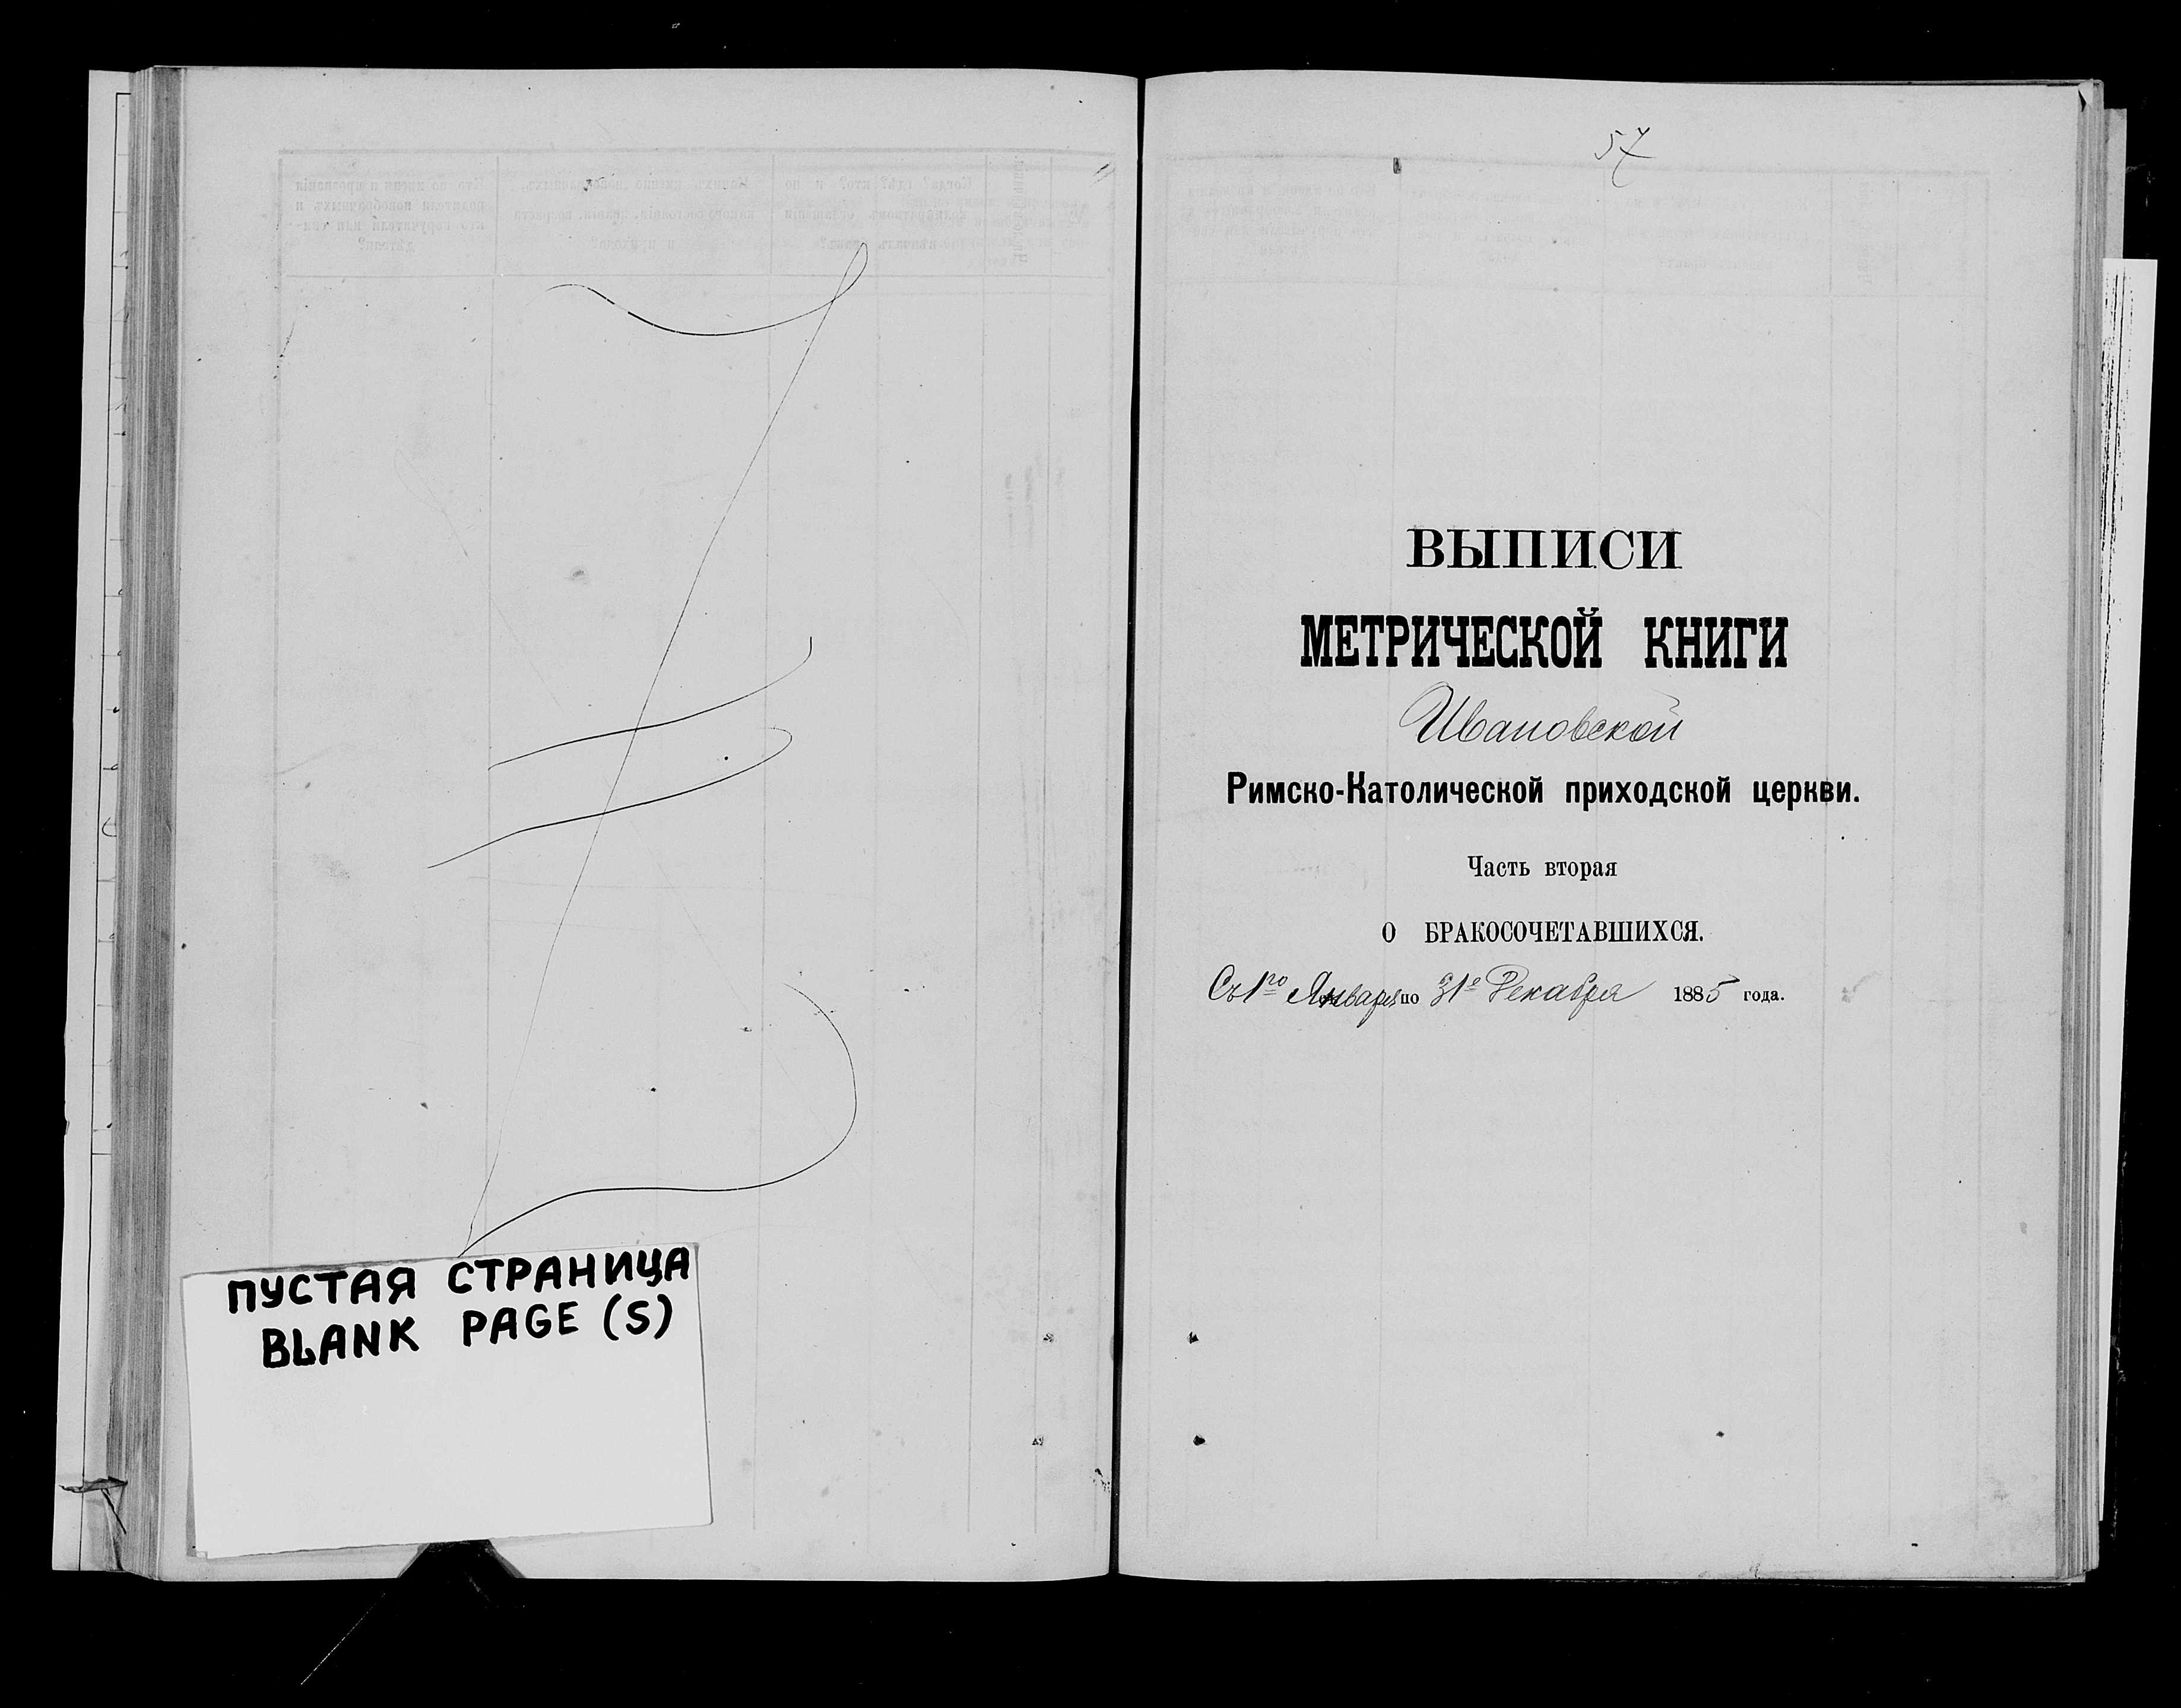 ПУСТАЯ СТРАНИЦА
BLANK PAGE (S)
57
ВЫПИСИ
МЕТРИЧЕСКОЙ КНИГИ
Ивановской
Римско-Католической приходской церкви.
Часть вторая
О БРАКОСОЧЕТАВШИХСЯ.
Съ 1го Января по 31е Декабря 1885 года.